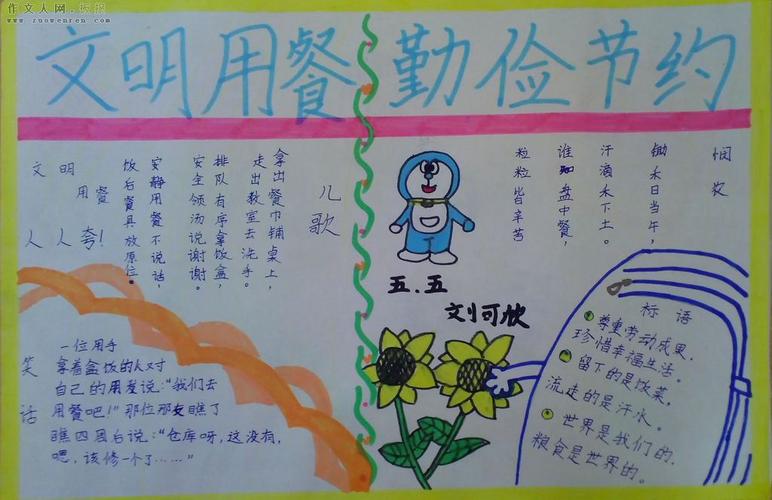 作文人网·板报
www.zuowenren.com
文明用餐 勤俭节约
文明
用餐
人人夸!
儿歌
拿出餐巾铺桌上,
走出教室去洗手。
排队有序拿饭盒,
安全领汤说谢谢。
安静用餐不说话,
饭后餐具放原位。
悯农
锄禾日当午,
汗滴禾下土。
谁知盘中餐,
粒粒皆辛苦
五.五
刘可忺
笑话
一位用手
拿着盒饭的人对
自己的用差说:“我们去
用餐吧!”那位那女瞧了
瞧四周后说:“仓库呀,这没有,
嗯,该修一个了……”
标语
尊重劳动成果,
珍惜幸福生活。
留下的是饭菜,
流走的是汗水。
世界是我们的,
粮食是世界的。